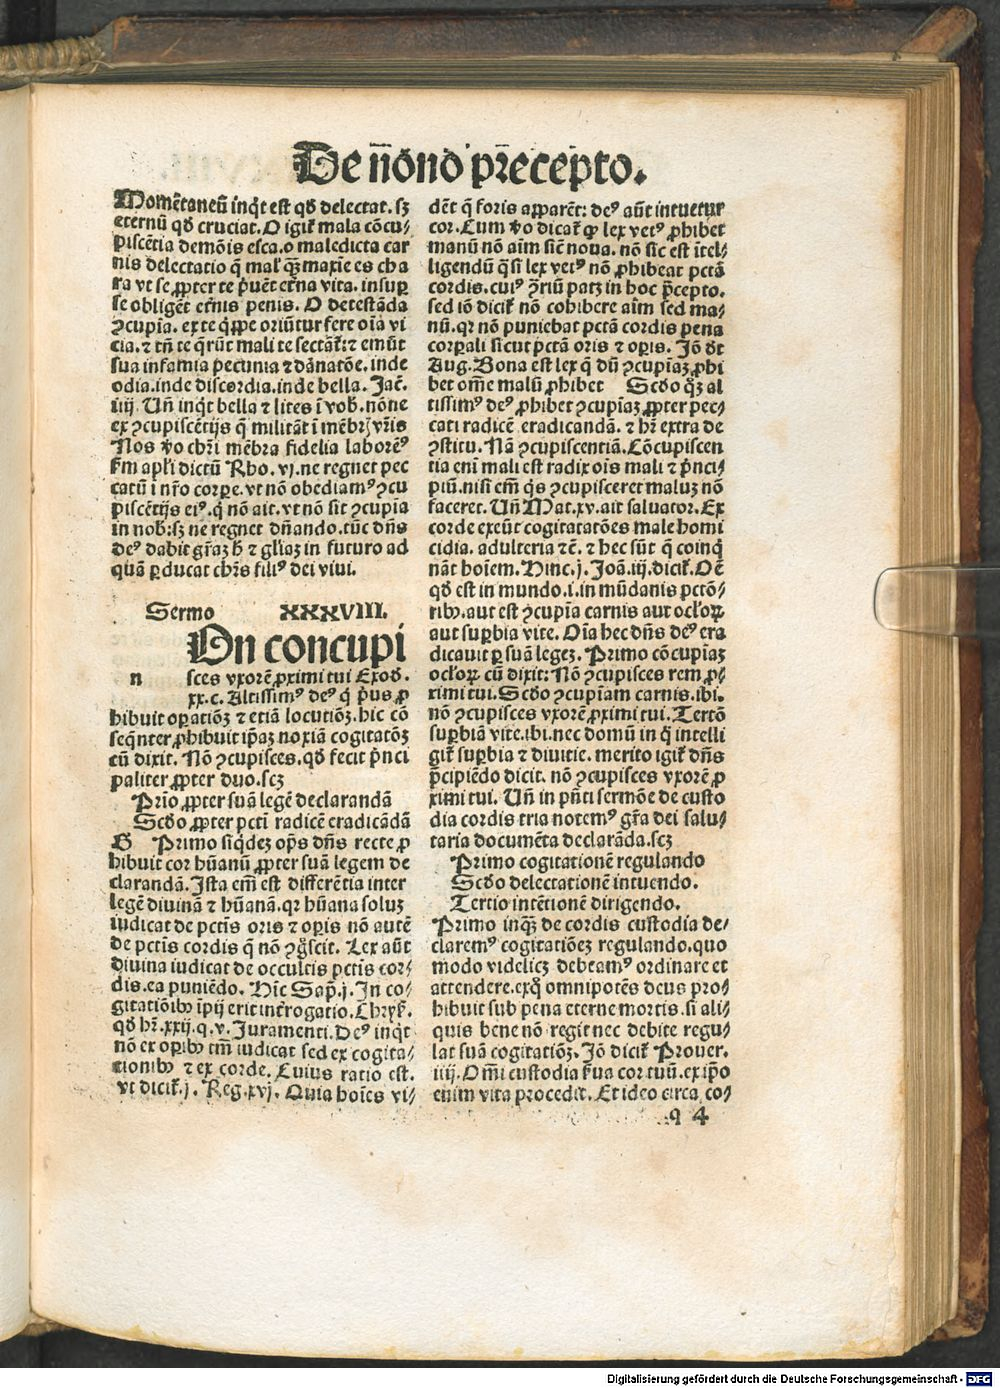 De n̄ono p̄recepto.
Momētaneū inq̇t est qd̛ delectat. sꝫ
eternū qd̛ cruciat. O igit̛ mala cōcu⸗
piscētia demōis esca. o maledicta car
nis delectatio q̄ mal̛ qꝫ maxīe es cha
ra vt se ꝓpter te p̄uēt et̛na vita. insuꝑ
se obligēt et̛nis penis. O detestāda
ꝯcupīa. ex te q̇ppe oriūtur fere oīa vi
cia. ⁊ tn̄ te q̄rūt mali te sectāt̛: ⁊ emūt
sua infamia pecunia ⁊ dānatōe. inde
odia. inde discordia. inde bella. Jac̄.
iiij. Un̄ inq̇t bella ⁊ lites ī vob̛. nōne
ex ꝯcupiscētijs q̄ militāt ī mēbrꝭ vr̄is
Nos v̛o chr̄i mēbra fidelia laborem⁹
ẜm apl̛i dictū Rho. vj. ne regnet pec
catū ī nr̄o corꝑe. vt nō obediam⁹ ꝯcu
piscētijs ei⁹. q̇ nō ait. vt nō sit ꝯcupīa
in nob̛: sꝫ ne regnet dn̄ando. tūc dn̄s
de⁹ dabit gr̄aꝫ h̛ ⁊ gl̛iaꝫ in futuro ad
quā ꝑducat chr̄s fili⁹ dei viui.
Sermo XXXVIII.
On concupi
n sces vxorē ꝓximi tui Exod̛.
xx. c. Altissim⁹ de⁹ q̇ pͥus ꝓ
hibuit oꝑatiōꝫ ⁊ etiā locutiōꝫ. hic cō
seq̄nter ꝓhibuit ip̄aꝫ noxiā cogitatōꝫ
cū dixit. Nō ꝯcupisces. qd̛ fecit pͥnci
paliter ꝓpter duo. scꝫ
Prīo ꝓpter suā legē declarandā
Scd̛o ꝓpter pctī radicē eradicādā
G Primo siqͥdeꝫ op̄s dn̄s recte ꝓ
hibuit cor hūanū ꝓpter suā legem de
clarandā. Ista em̄ est differētia inter
legē diuinā ⁊ hūanā. qꝛ hūana soluꝫ
iudicat de pctīs oris ⁊ oꝑis nō autē
de pctīs cordis q̄ nō ꝯgͦscit. Lex aūt
diuina iudicat de occultis pctīs cor⸗
dis. ea puniēdo. Hīc Sap̄. j. In co⸗
gitatiōibꝰ īpij erit int̛rogatio. Chryẜ.
qd̛ hr̄. xxij. q. v. Juramenti. De⁹ inq̇t
nō ex oꝑibꝰ tm̄ iudicat sed ex cogita⸗
tionibꝰ ⁊ ex corde. Cuius ratio est.
vt dicit̛. j. Reg. xvj. Quia hoīes vi⸗
dēt q̄ foris apparēt: de⁹ aūt intuetur
cor. Cum v̛o dicat̛ ꝙ lex vet⁹ ꝓhibet
manū nō aīm sic̄ noua. nō sic est ītel⸗
ligendū q̄si lex vet⁹ nō ꝓhibeat pctā
cordis. cui⁹ ꝯr̄iū patꝫ in hoc p̄cepto.
sed iō dicit̛ nō cohibere aīm sed ma⸗
nū. qꝛ nō puniebat pctā cordis pena
corꝑali sicut pctā oris ⁊ oꝑis. Jō dt̛
Aug. Bona est lex q̄ dū ꝯcupīaꝫ ꝓhi
bet om̄e malū ꝓhibet Scd̛o qꝫ al
tissim⁹ de⁹ ꝓhibet ꝯcupīaꝫ ꝓpter pec⸗
cati radicē eradicandā. ⁊ hr̄ extra de
ꝯstitu. Nā ꝯcupiscentiā. Cōcupiscen
tia eni mali est radix oīs mali ⁊ pͥnci⸗
piū. nisi em̄ qͥs ꝯcupisceret maluꝫ nō
faceret. Un̄ Mat. xv. ait saluator. Ex
corde exeūt cogitatatōes male homi
cidia. adulteria ⁊c̄. ⁊ hec sūt q̄ coinqͥ
nāt hoīem. Hinc. j. Joā. iij. dicit̛. Oē
qd̛ est in mundo. i. in mūdanis pctō⸗
ribꝰ. aut est ꝯcupīa carnis aut oculoꝝ
aut suꝑbia vite. Oīa hec dn̄s de⁹ era
dicauit ꝑ suā legeꝫ. Primo cōcupīaꝫ
oculoꝝ cū dixit: Nō ꝯcupisces rem ꝓ⸗
ximi tui. Scd̛o ꝯcupīam carnis. ibi.
nō ꝯcupisces vxorē ꝓximi tui. Tertō
suꝑbiā vite. ibi. nec domū in q̇ intelli
git̛ suꝑbia ⁊ diuitie. merito igit̛ dn̄s
p̄cipiēdo dicit. nō ꝯcupisces vxorē ꝓ
ximi tui. Un̄ in pn̄ti sermōe de custo
dia cordis tria notem⁹ gr̄a dei salu⸗
taria documēta declarāda. scꝫ
Primo cogitationē regulando
Scd̛o delectationē intuendo.
Tertio intētionē dirigendo.
Primo inqꝫ de cordis custodia de⸗
clarem⁹ cogitatiōeꝫ regulando. quo
modo videlicꝫ debeam⁹ ordinare et
attendere. exq̇ omnipotēs deus pro⸗
hibuit sub pena eterne mortis. si ali⸗
quis bene nō regit nec debite regu⸗
lat suā cogitatiōꝫ. Jō dicit̛ Prouer.
iiij. Om̄i custodia ẜua cor tuū. ex ip̄o
enim vita procedit. Et ideo circa co⸗
q 4
Digitalisierung gefördert durch die Deutsche Forschungsgemeinschaft - DFG